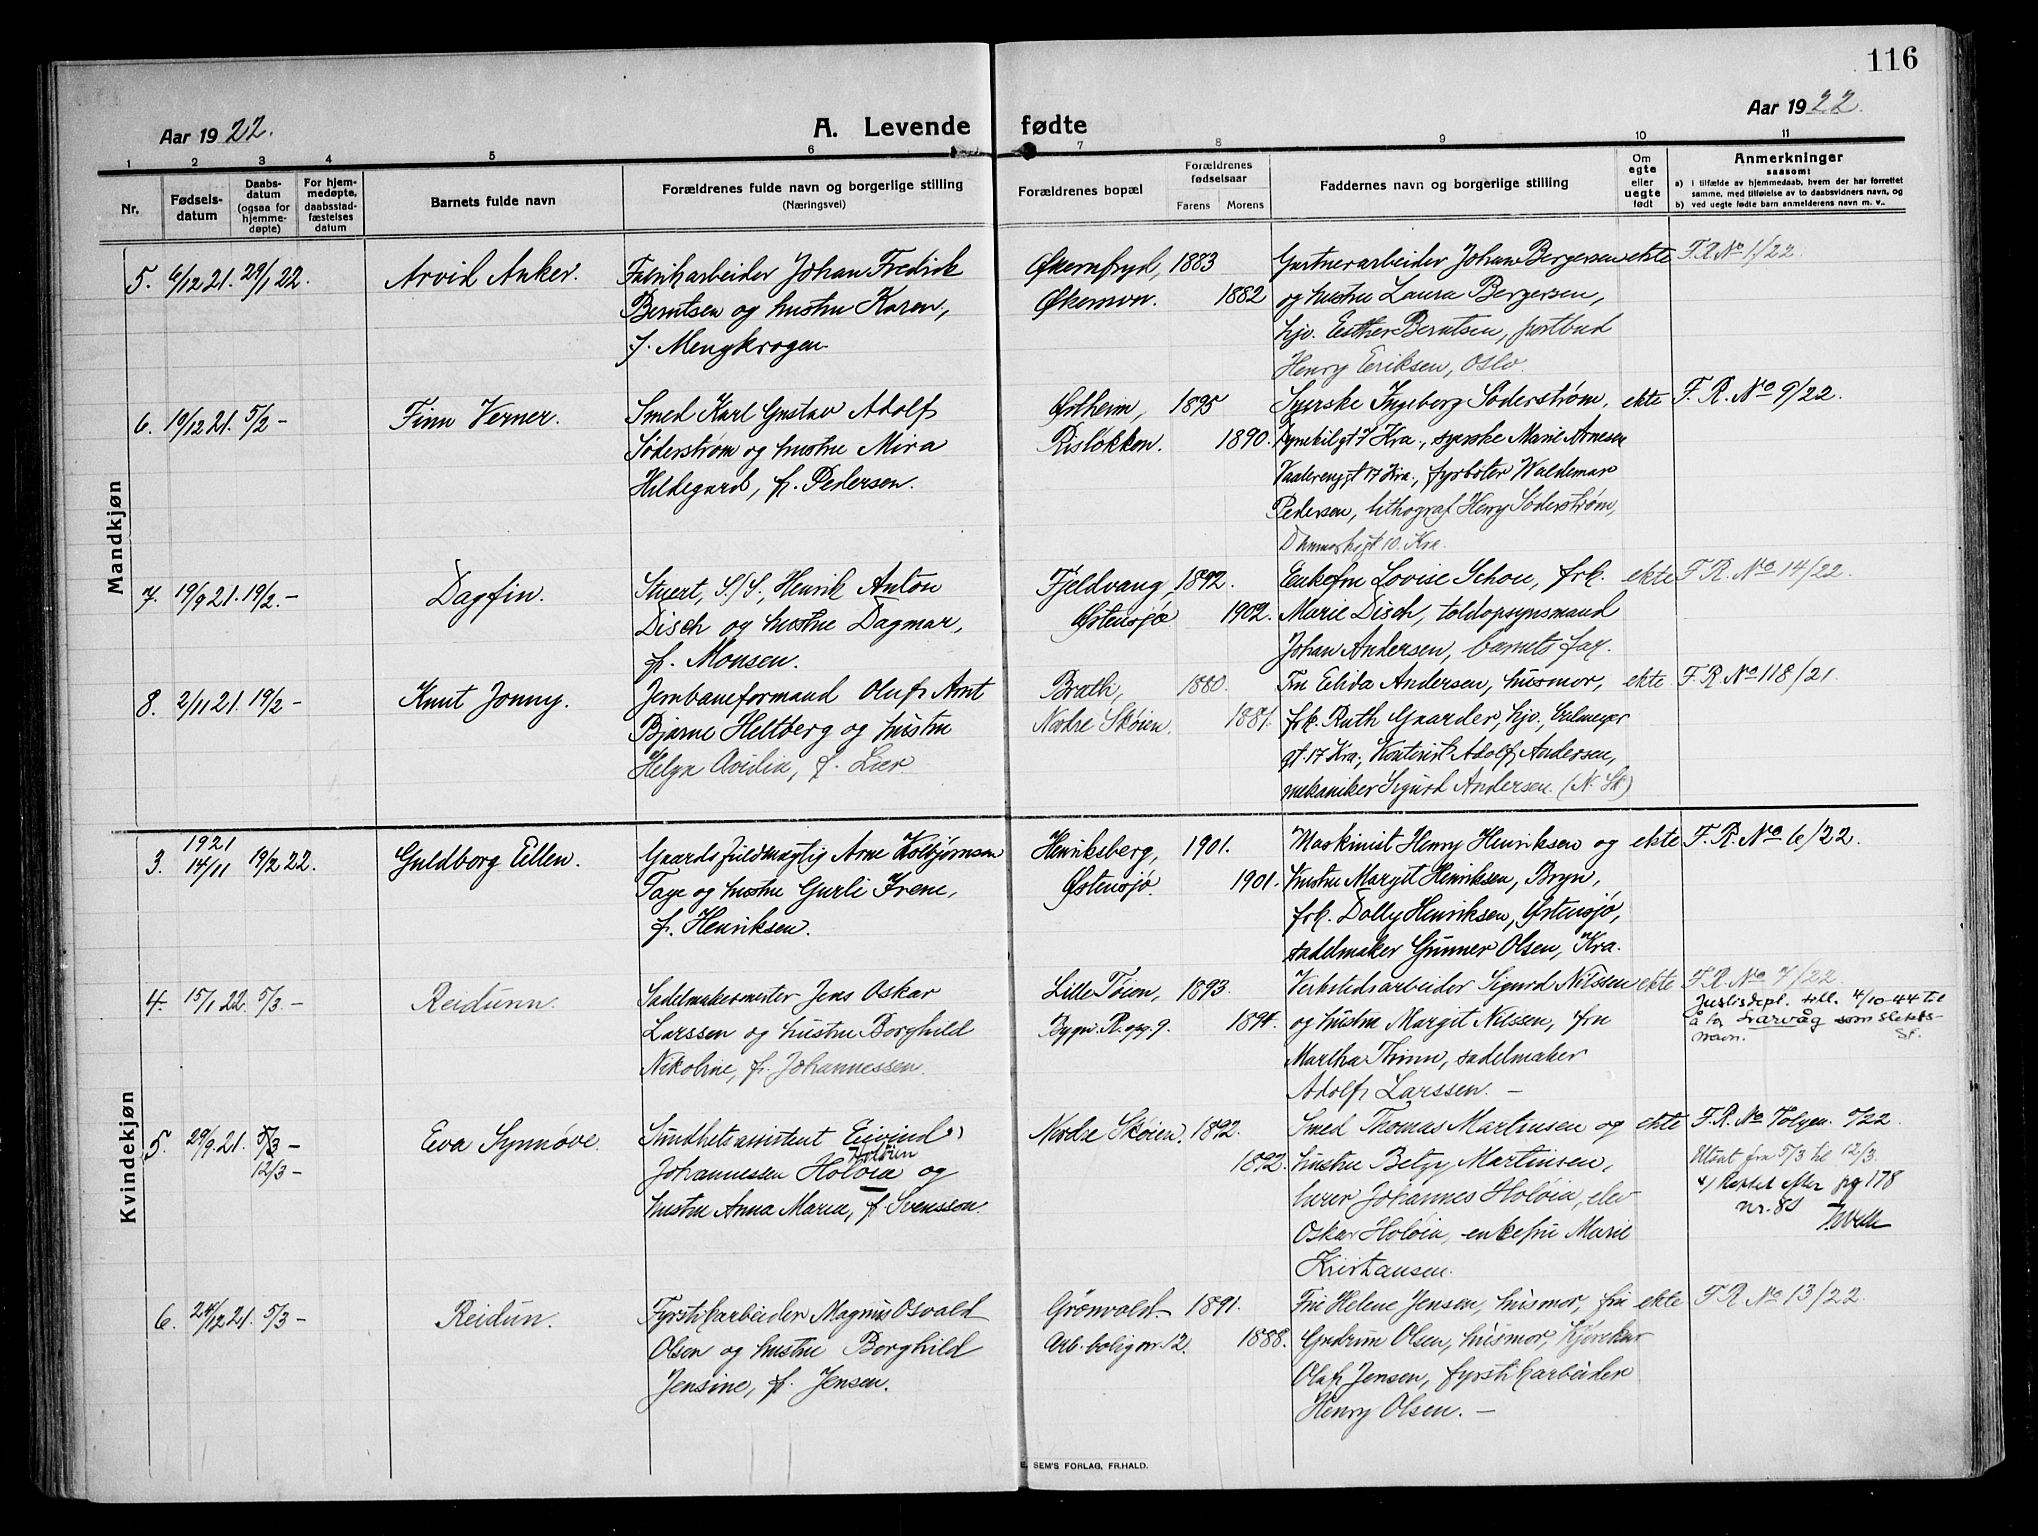 116
Aar 1922.
A. Levende fødte
Aar 1922.
1 2 3 4 5 6 7 8 9 10 11
Nr.
Fødsels-
datum
Daabs-
datum
(ogsaa for
hjemme-
døpte)
For hjem-
medøpte,
daabsstad-
fæstelses
datum
Barnets fulde navn
Forældrenes fulde navn og borgerlige stilling
(Næringsvei)
Forældrenes bopæl
Forældrenes
fødselsaar
Farens Morens
Faddernes navn og borgerlig stilling
Om
egte
eller
uegte
født
Anmerkninger
saasom:
a) i tilfælde av hjemmedaab, hvem der har forrettet
samme, med tilføielse av to daabsvidners navn, og
b) ved uegte fødte barn anmelderens navn m. v..
Mandkjøn
5. 6/12 21. 29/1 22. Arvid Anker.
Fabrikarbeider Johan Fredrik
Berntsen og hustru Karen,
f. Mengkrogen.
Økernfryd, 1883
Økernvn. 1882
Gartnerarbeider Johan Bergersen
og hustru Laura Bergersen,
hjv. Esther Berntsen, postbud
Henry Eriksen, Oslo.
ekte F.R. No 1/22.
6. 19/12 21. 5/2 – Finn Verner.
Smed Karl Gustav Adolf
Söderstrøm og hustru Mira
Hildegard, f. Pedersen.
Østheim, 1895
Risløkken. 1890.
Syerske Ingeborg Söderstrøm,
7 Kra., syerske Marie Arnesen
Vaalerenggt 17 Kra., fyrbøter Waldemar
Pedersen, lithograf Henry Söderstrøm,
Danmarksgt 10. Kra.
ekte F.R. No 9/22.
7. 19/9 21. 19/2. – Dagfin.
Stuert, S/S, Henrik Anton
Disch og hustru Dagmar,
f. Monsen.
Fjeldvang, 1892.
Østensjø 1902.
Enkefru Lovise Schou, frk.
Marie Disch, toldopsynsmand
Johan Andersen, barnets far.
ekte F.R. No 14/22.
8. 2/11 21. 19/2 – Knut Jonny.
Jernbaneformand Oluf Arnt
Bjarne Heltberg og hustru
Helga Ovidia, f. Lier.
Brath, 1880.
Nedre Skøien. 1881.
Fru Elida Andersen, husmor,
frk. Ruth Gaarder, hjv. Calmeyer
gt. 17 Kra., Kontorist Adolf Andersen,
mekaniker Sigurd Andersen (N. Sk)
ekte F.R. No 118/21.
Kvindekjøn
1921
3. 14/11 19/2 22. Guldborg Ellen.
Gaardsfuldmægtig Arne Kolbjørnsen
Tage og hustru Gurli Irene,
f. Henriksen.
Henriksberg, 1901.
Østensjø. 1901.
Maskinist Henry Henriksen og
hustru Margit Henriksen, Bryn,
frk. Dolly Henriksen, Østensjø,
sadelmaker Gunner Olsen, Kra.
ekte F.R. No 6/22.
4. 15/1 22. 5/3 – Reidunn.
Sadelmakermester Jens Oskar
Larssen og hustru Borghild
Nikoline, f. Johannessen.
Lille Tøien, 1893.
Bygn. R. opg. 9. 1894.
Verkstedsarbeider Sigurd Nilssen
og hustru Margit Nilssen, fru
Martha Thinn, sadelmaker
Adolf Larssen. –
ekte F.R. No 7/22
Justisdept. till. 4/10-44 til
å ta Svarvåg som slekts-
navn.
5. 29/9. 21. 5/3 – Eva Synnøve.
12/3 –
Sundhetsassistent Eivind
Holøien
Johannessen Holøia og
hustru Anna Maria, f. Svensson.
Nedre Skøien. 1892.
1892.
Smed Thomas Martinsen og
hustru Betzy Martinsen,
lærer Johannes Holøia, elev
Oskar Holøia, enkefru Marie
Kristiansen.
ekte F.R. No Volgen. 5/22
Utsat fra 5/3 til 12/3.
Rettet etter pg 178
nr. 80
6. 24/12 21. 5/3 – Reidun.
Fyrstikarbeider Magnus Osvald
Olsen og hustru Borghild
Jensine, f. Jensen.
Grönvold. 1891.
Arb. bolig nr. 12. 1888.
Fru Helene Jensen, husmor, fru
Gudrun Olsen, husmor, Kjørekar
Olaf Jensen, fyrstikarbeider
Henry Olsen. –
ekte F.R. No 13/22.
E. SEM'S FORLAG, FR.HALD.